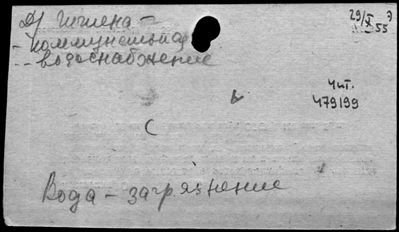 Д) Гигиена –
– коммунальная
– водоснабжение
29/X 55 Э
Чит.
479199
Вода – загрязнение